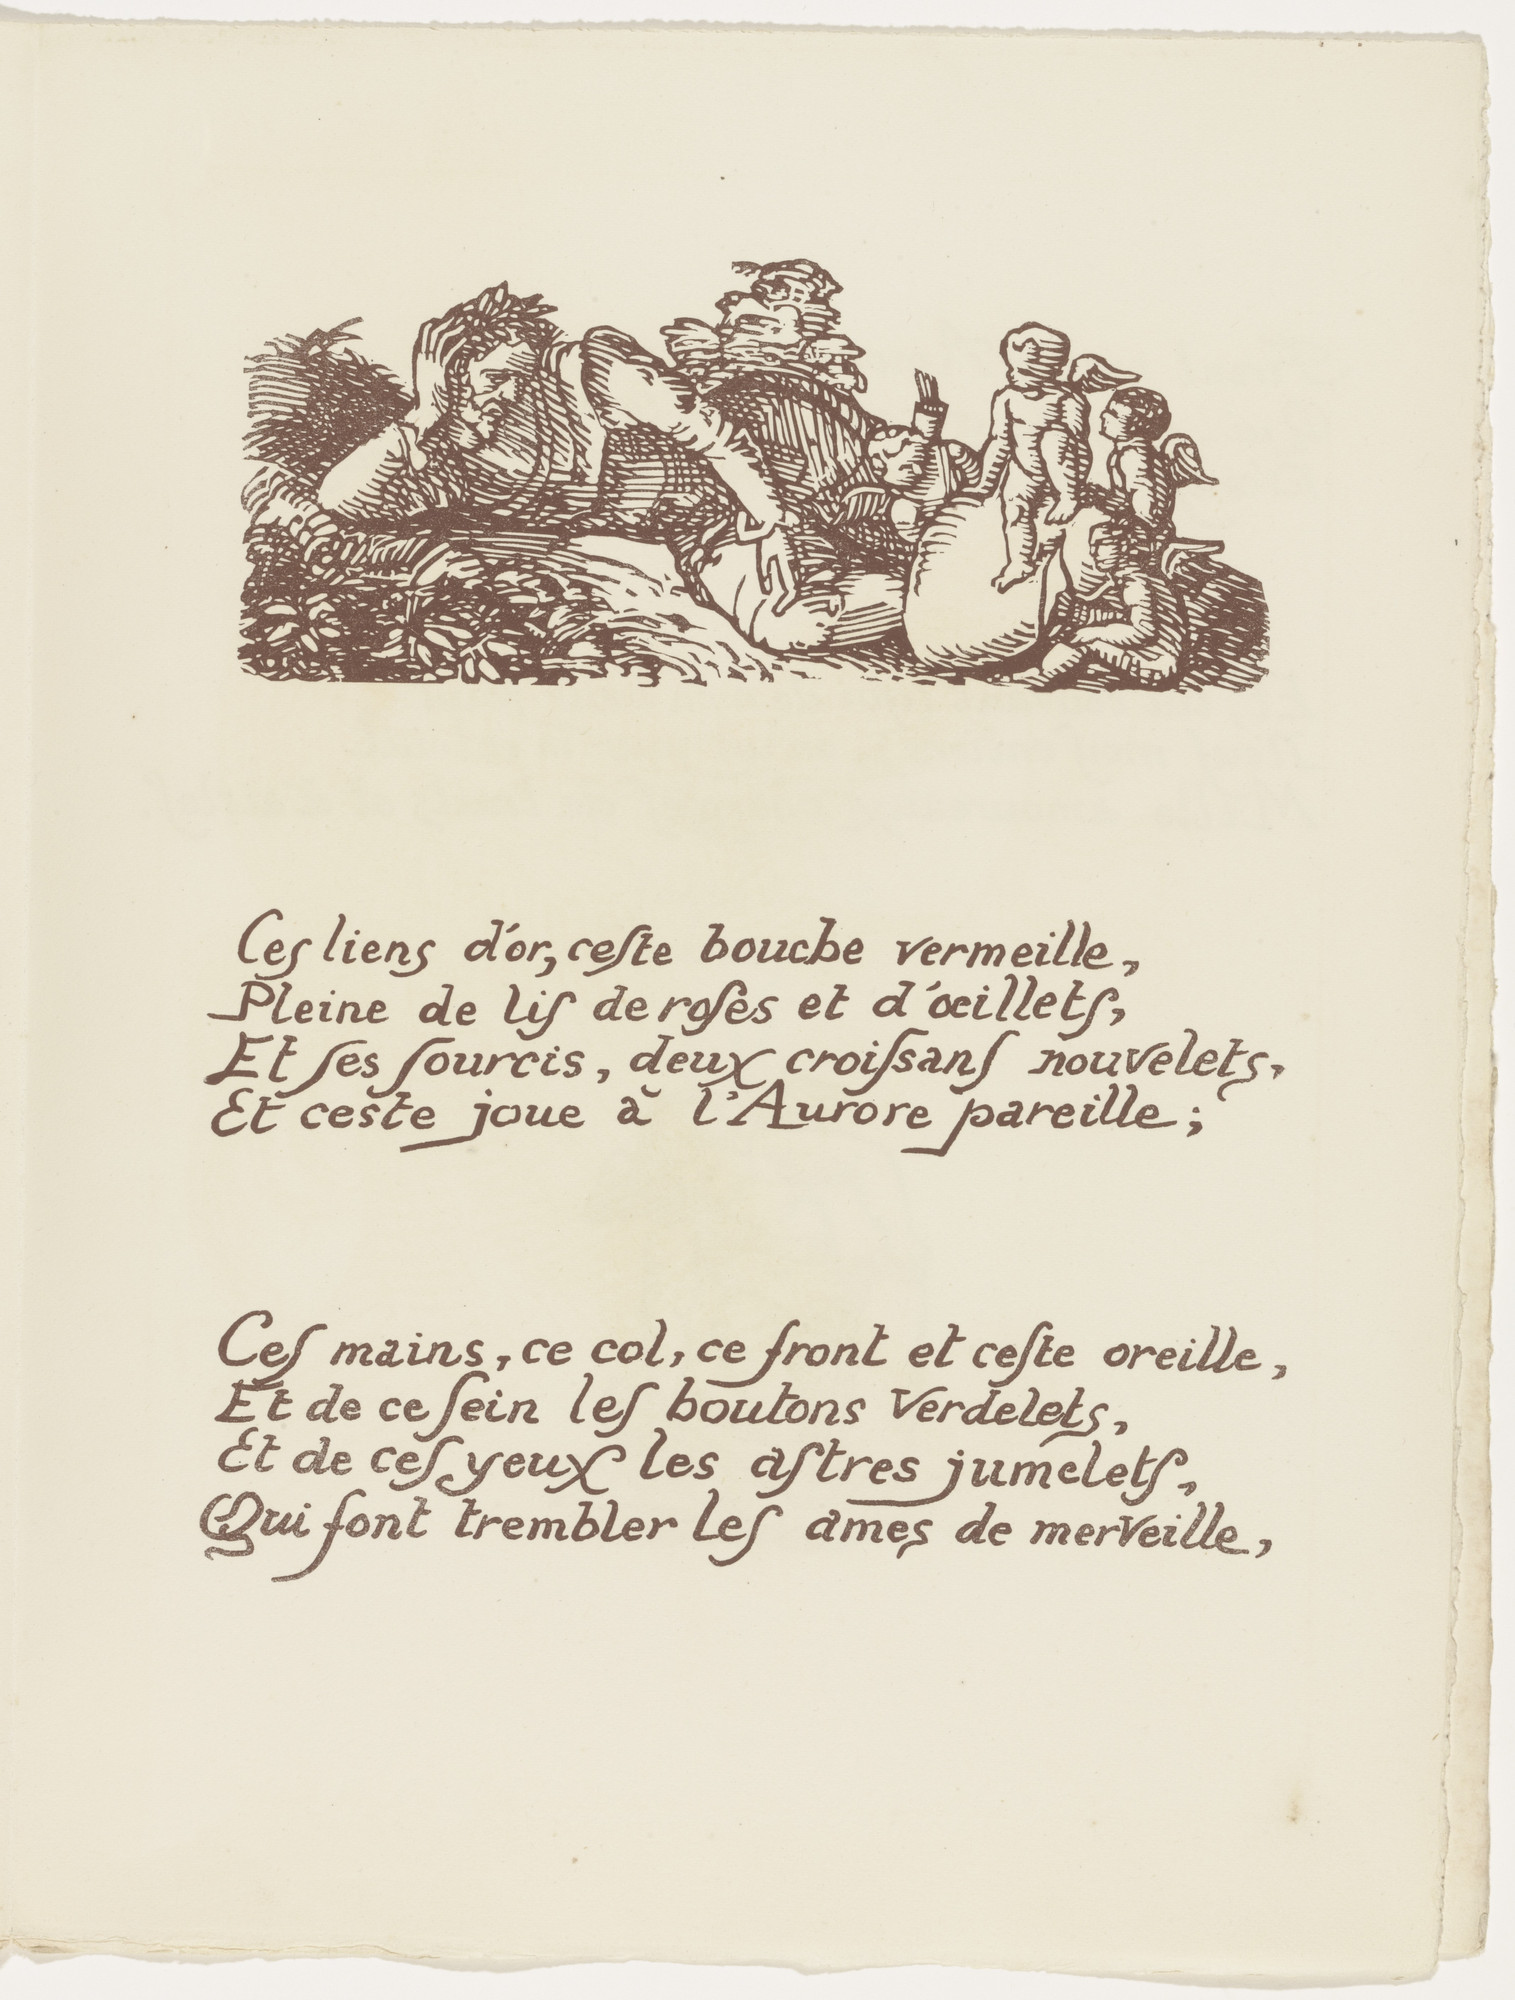 Ces liens d'or, ceſte bouche vermeille,
Pleine de liſ de roſes et d'œilletſ,
Et ſes ſourcis, deux croiſsanſ nouvelets,
Et ceste joue à l'Aurore pareille;
Ceſ mains, ce col, ce front et ceſte oreille,
Et de ce ſein leſ boutons verdelets,
Et de ceſ yeux les aſtres jumeletſ,
Qui font trembler leſ ames de merveille,